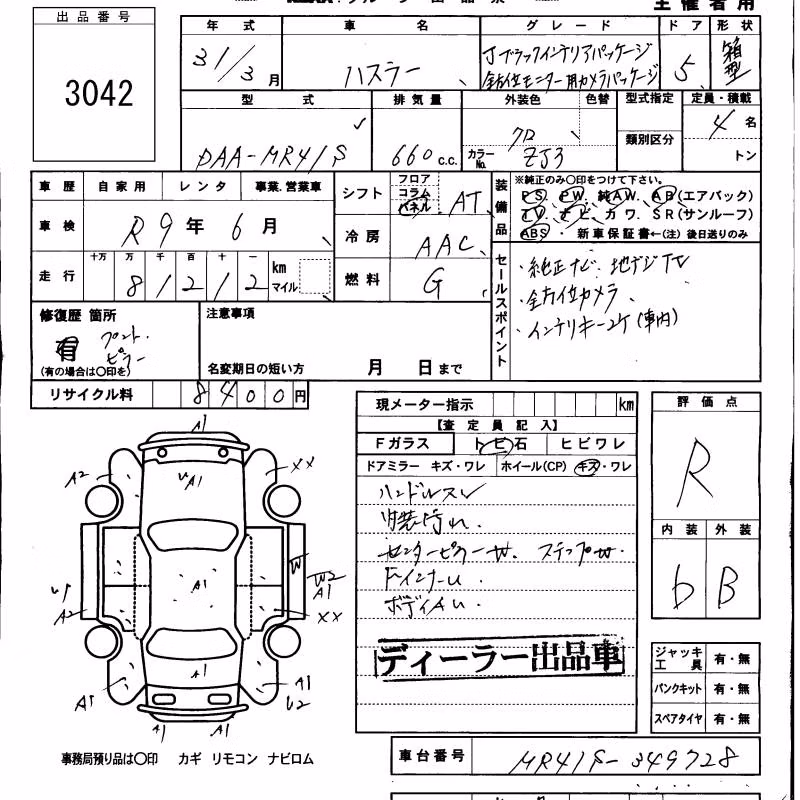 主催者用
出品番号
3042
年式 車名 グレード ドア 形状
31/3月 ハスラー Jブラックインテリアパッケージ 5 箱型
全方位モニター用カメラパッケージ
型式 排気量 外装色 色替 型式指定 定員・積載
DAA-MR41S 660c.c. クロ 類別区分 4名
カラーNo. ZJ3 トン
車歴 自家用 レンタ 事業.営業車
シフト フロア コラム パネル AT
装備品 ※純正のみ○印をつけて下さい。
PS. PW. 純AW. AB(エアバック)
TV. ナビ. カワ. SR(サンルーフ)
ABS ・ 新車保証書←(注) 後日送りのみ
車検 R9年6月
冷房 AAC
走行 十万 万 千 百 十 一
81212 km マイル
燃料 G
セールスポイント
・純正ナビ. 地デジTV
・全方位カメラ
・インテリキー2ケ(車内)
修復歴 箇所
有 フロント. ピラー
(有の場合は○印を)
注意事項
名変期日の短い方 月 日まで
リサイクル料 8400円
現メーター指示 km
【査定員記入】
Fガラス トビ石 ヒビワレ
ドアミラー キズ・ワレ ホイール(CP) キズ・ワレ
ハンドルスレ
内装汚れ.
センターピラーW. ステップW.
ドインナーU.
ボディAU.
ディーラー出品車
評価点
R
内装 外装
b B
ジャッキ工具 有・無
パンクキット 有・無
スペアタイヤ 有・無
A1
A2 UA1 XX
A1 W W2 A1
A2 XX
A1 A1 U2
A1 A1
事務局預り品は○印 カギ リモコン ナビロム
車台番号 MR41S-349728